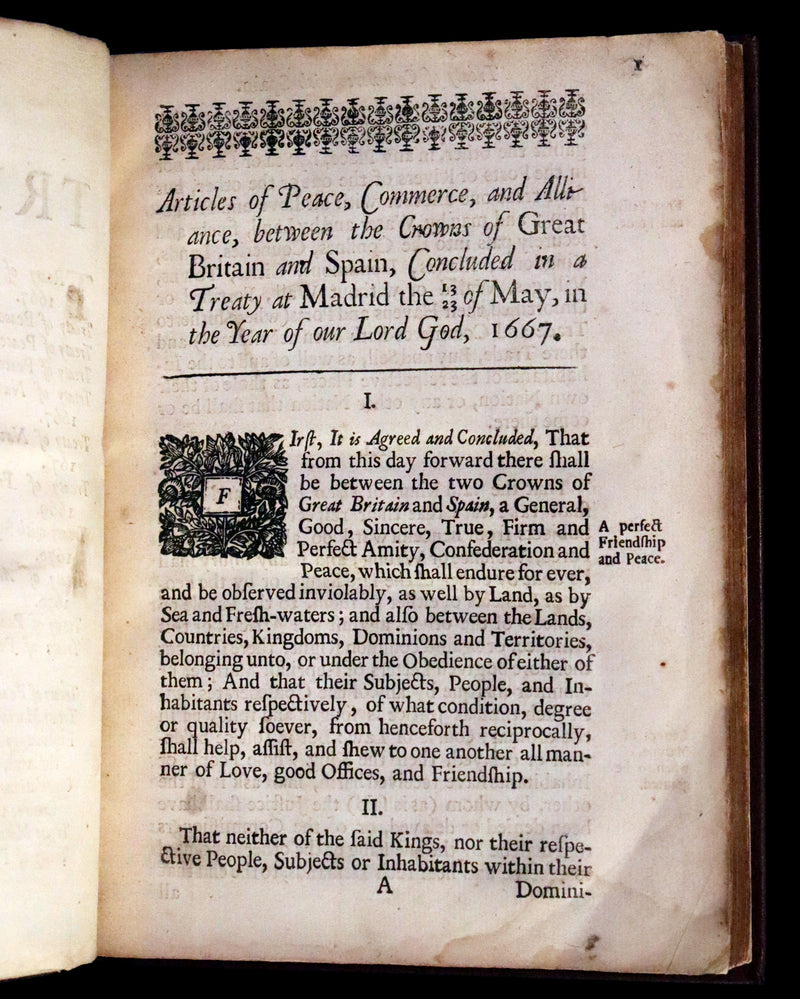 1
Articles of Peace, Commerce, and Alli-
ance, between the Crowns of Great
Britain and Spain, Concluded in a
Treaty at Madrid the 13/23 of May, in
the Year of our Lord God, 1667.
I.
FIrſt, It is Agreed and Concluded, That
from this day forward there ſhall
be between the two Crowns of
Great Britain and Spain, a General,
Good, Sincere, True, Firm and
Perfect Amity, Confederation and
Peace, which ſhall endure for ever,
A perfect
Friendſhip
and Peace.
and be obſerved inviolably, as well by Land, as by
Sea and Freſh-waters; and alſo between the Lands,
Countries, Kingdoms, Dominions and Territories,
belonging unto, or under the Obedience of either of
them; And that their Subjects, People, and In-
habitants reſpectively, of what condition, degree
or quality ſoever, from henceforth reciprocally,
ſhall help, aſſiſt, and ſhew to one another all man-
ner of Love, good Offices, and Friendſhip.
II.
That neither of the ſaid Kings, nor their reſpe-
ctive People, Subjects or Inhabitants within their
A
Domini-